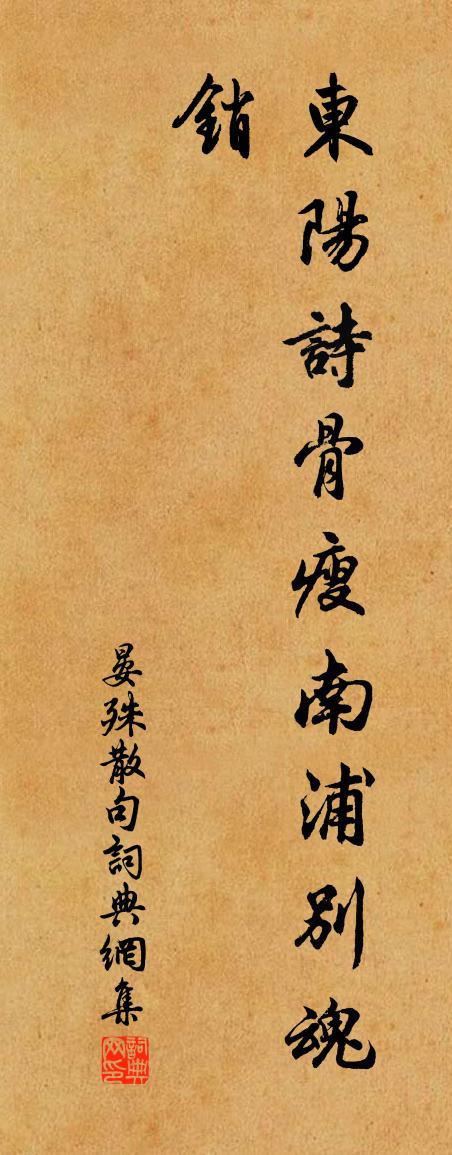 東陽詩骨瘦南浦別魂
銷
晏殊散句詞典網集
詞典網印